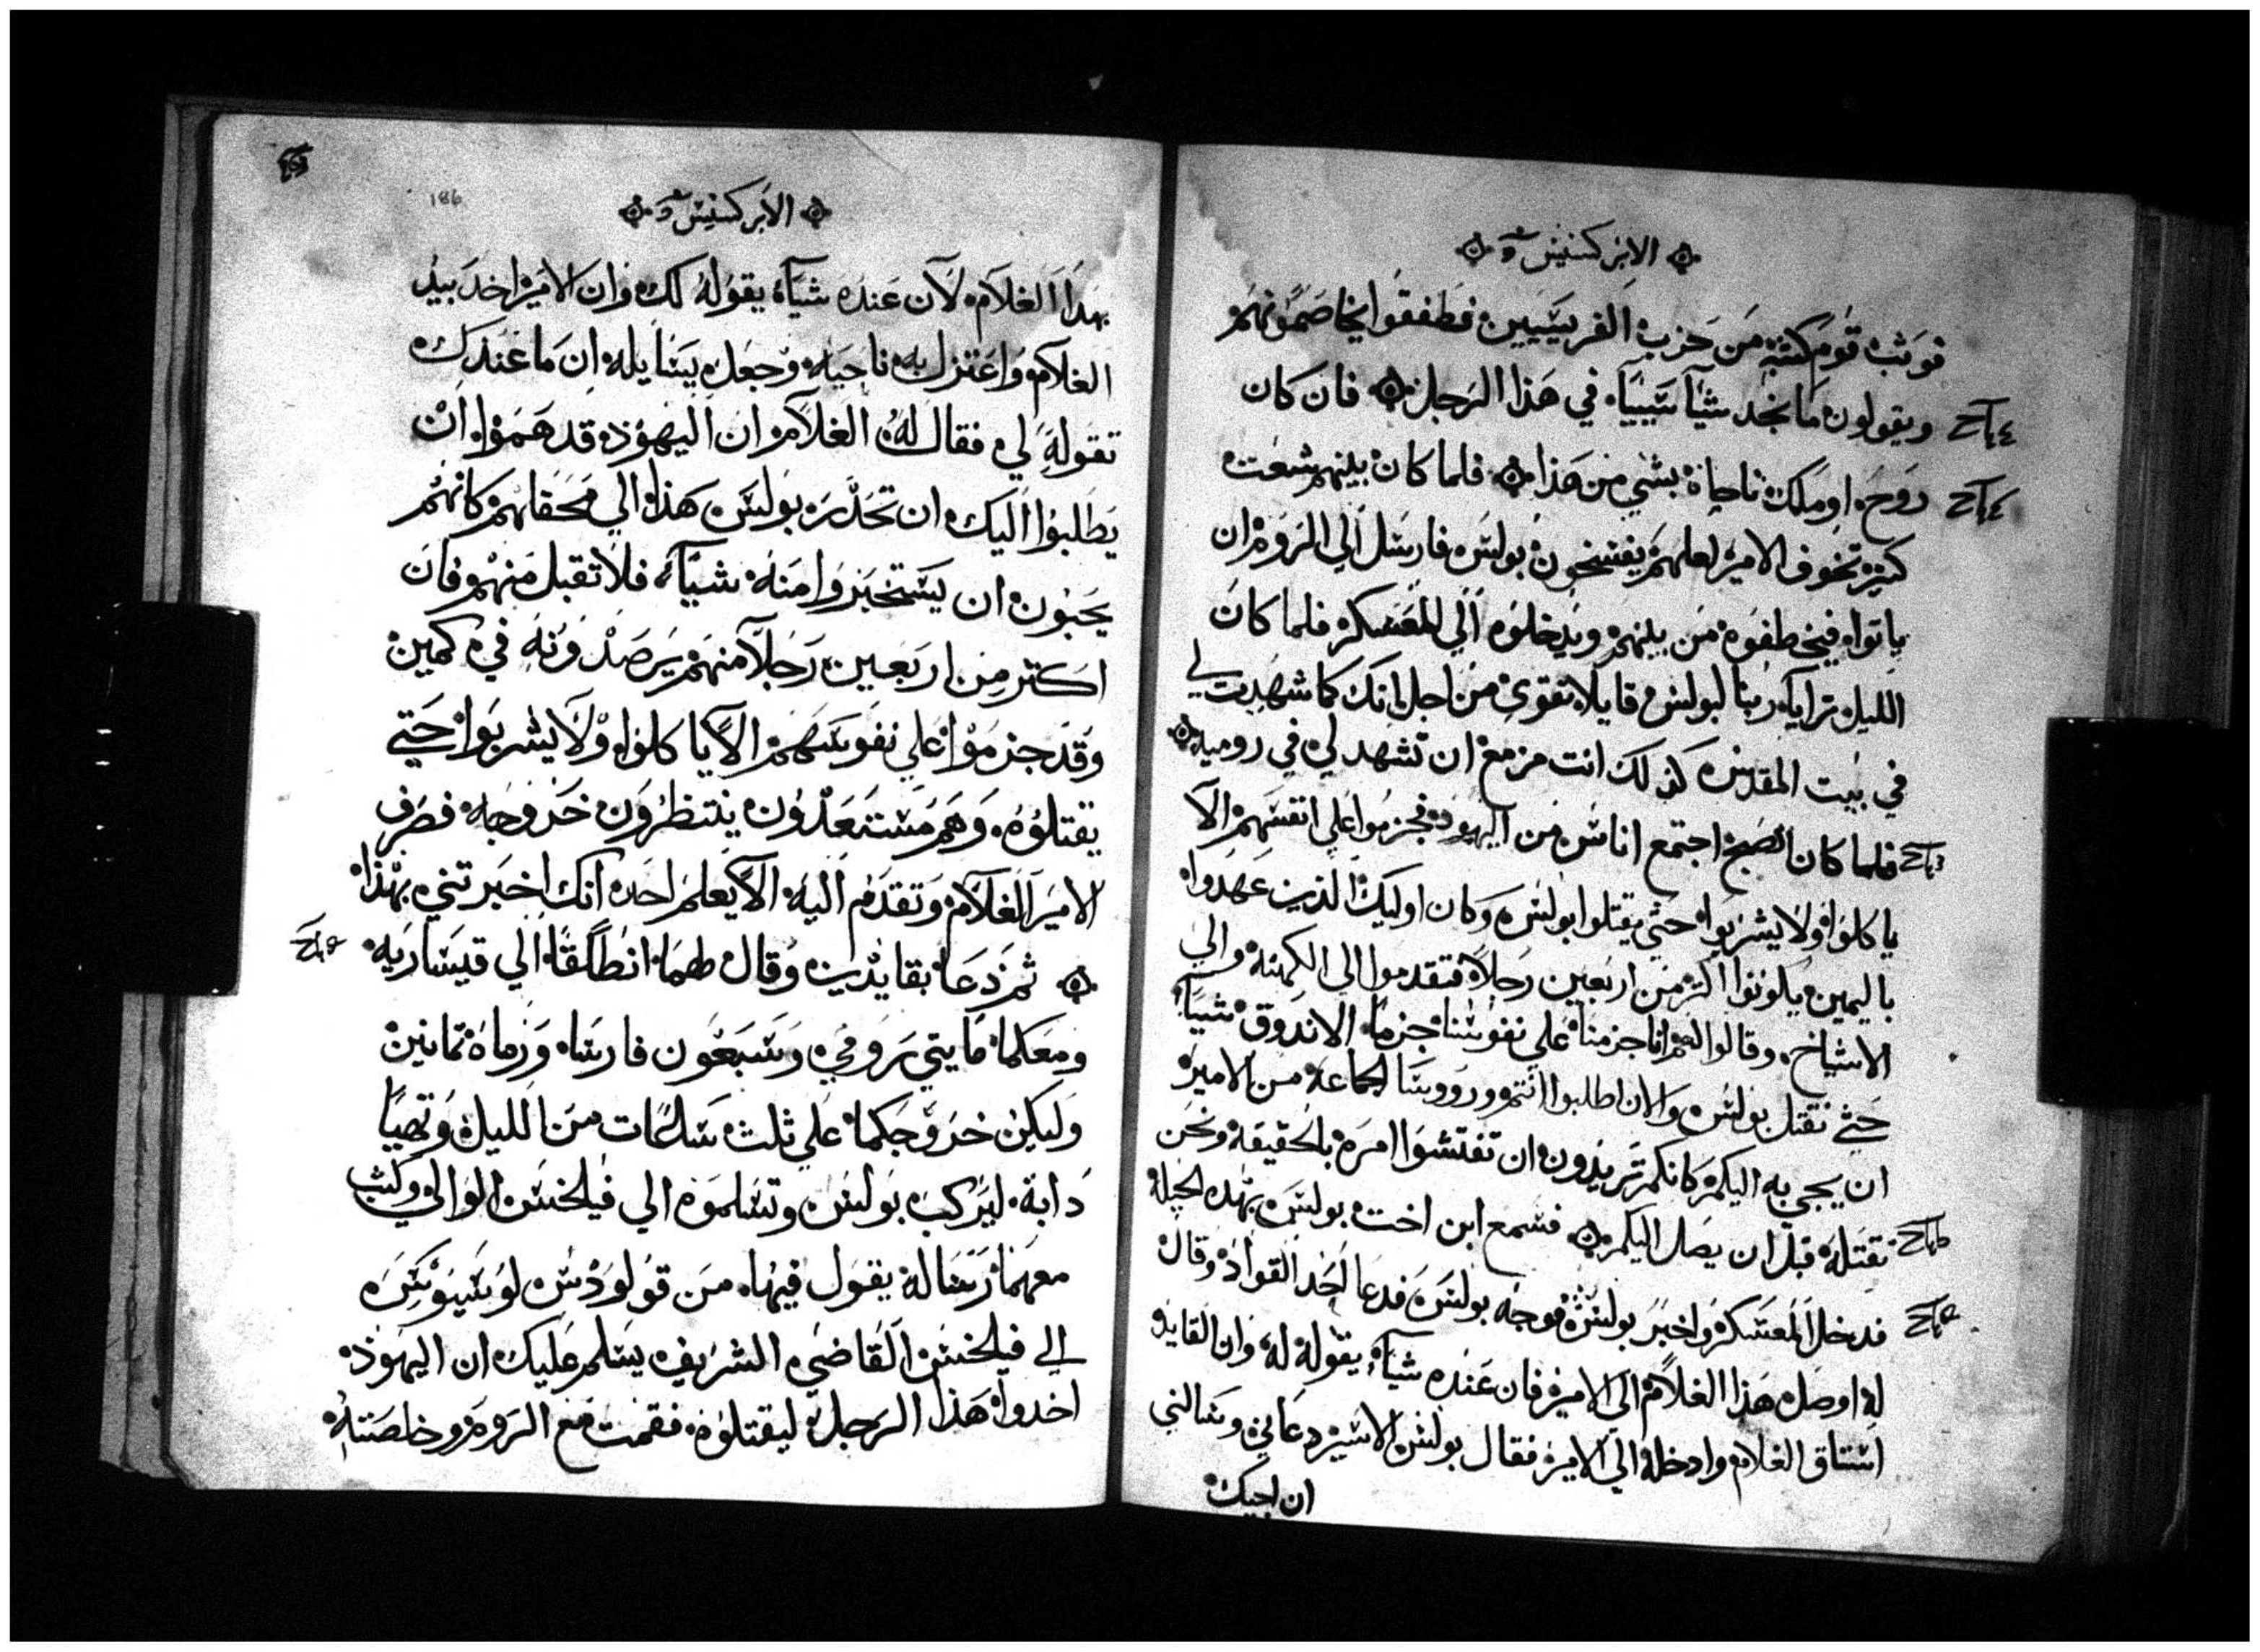 الابركسيس
فوثب قوم كتبة من حزب الفريسيين فطفقوا يخاصمونهم
ويقولون ما نجد شيا سيياً في هذا الرجل فان كان
روح او ملك ناجاة بشي من هذا فلما كان بينهم شعت
كتير تخوف الامير لعلهم يفسخون بولس فارسل الي الروم ان
ياتوا فيخطفوه من بينهم ويدخلوه الي المعسكر فلما كان
الليل ترايا ربنا لبولس قايلا تقوي من اجل انك كما شهدت لي
في بيت المقدس كذلك انت مزمع ان تشهد لي في روميه
فلما كان الصبح اجتمع اناس من اليهود فجزموا علي انفسهم الا
ياكلوا ولا يشربوا حتي يقتلوا بولس وكان اوليك الذين عهدوا
باليمين يكونوا اكتر من اربعين رجلا فتقدموا الي الكهنه والي
الاشياخ وقالوا لهم انا جزمنا علي نفوسنا جزما الا ندوق شيا
حتي نقتل بولس والان اطلبوا انتم وروسا الجماعة من الامير
ان يجي به اليكم كانكم تريدون ان تفتشوا امره بالحقيقة ونحن
نقتله قبل ان يصل اليكم فسمع ابن اخت بولس بهده الحيلة
فدخل المعسكر واخبر بولس فوجه بولس فدعا احد القواد وقال
له اوصل هذا الغلام الي الامير فان عنده شيا يقوله له وان القايد
استاق الغلام وادخله الي الامير فقال بولس الاسير دعاني وسالني
ان اجيك
186
الابركسيس
بهدا الغلام لان عنده شيا يقوله لك وان الامير اخد بيد
الغلام واعتزل به ناحيه وجعل يسايله ان ما عندك
تقوله لي فقال له الغلام ان اليهود قد هموا ان
يطلبوا اليك ان تحدر بولس هذا الي محفلهم كانهم
يحبون ان يستخبروا منه شيا فلا تقبل منهم فان
اكتر من اربعين رجلا منهم يرصدونه في كمين
وقد جزموا علي نفوسهم الا ياكلوا ولا يشربوا حتي
يقتلوه وهم مستعدون ينتظرون خروجه فصرف
الامير الغلام وتقدم اليه الا يعلم احد انك اخبرتني بهذا
ثم دعا بقايدين وقال لهما انطلقا الي قيساريه
ومعكما مايتي رومي وسبعون فارسا ورماة تمانين
وليكن خروجكما علي ثلث ساعات من الليل وتهيا
دابة ليركب بولس وتسلموه الي فيلخس الوالي وكتب
معهما رسالة يقول فيها من قولودس لوسيوس
الي فيلخس القاضي الشريف يسلم عليك ان اليهود
اخدوا هذا الرجل ليقتلوه فقمت مع الروم وخلصته